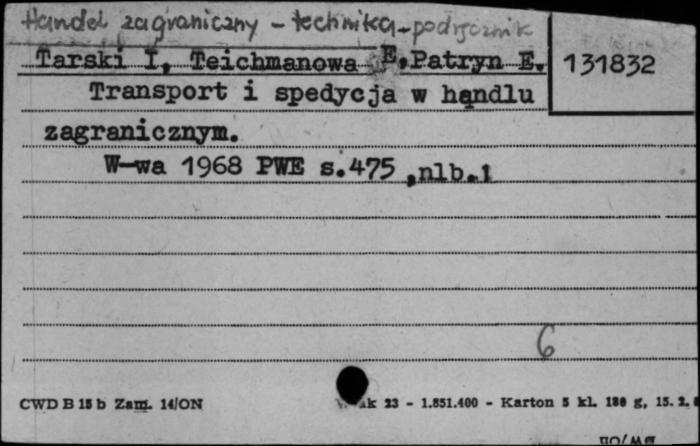 Handel zagraniczny - technika - podręcznik
Tarski I, Teichmanowa E, Patryn E.
131832
Transport i spedycja w handlu
zagranicznym.
W-wa 1968 PWE s.475 ,nlb.1
6
CWD B 15 b Zam. 14/ON
23 - 1.851.400 - Karton 5 kl. 180 g, 15. 2.